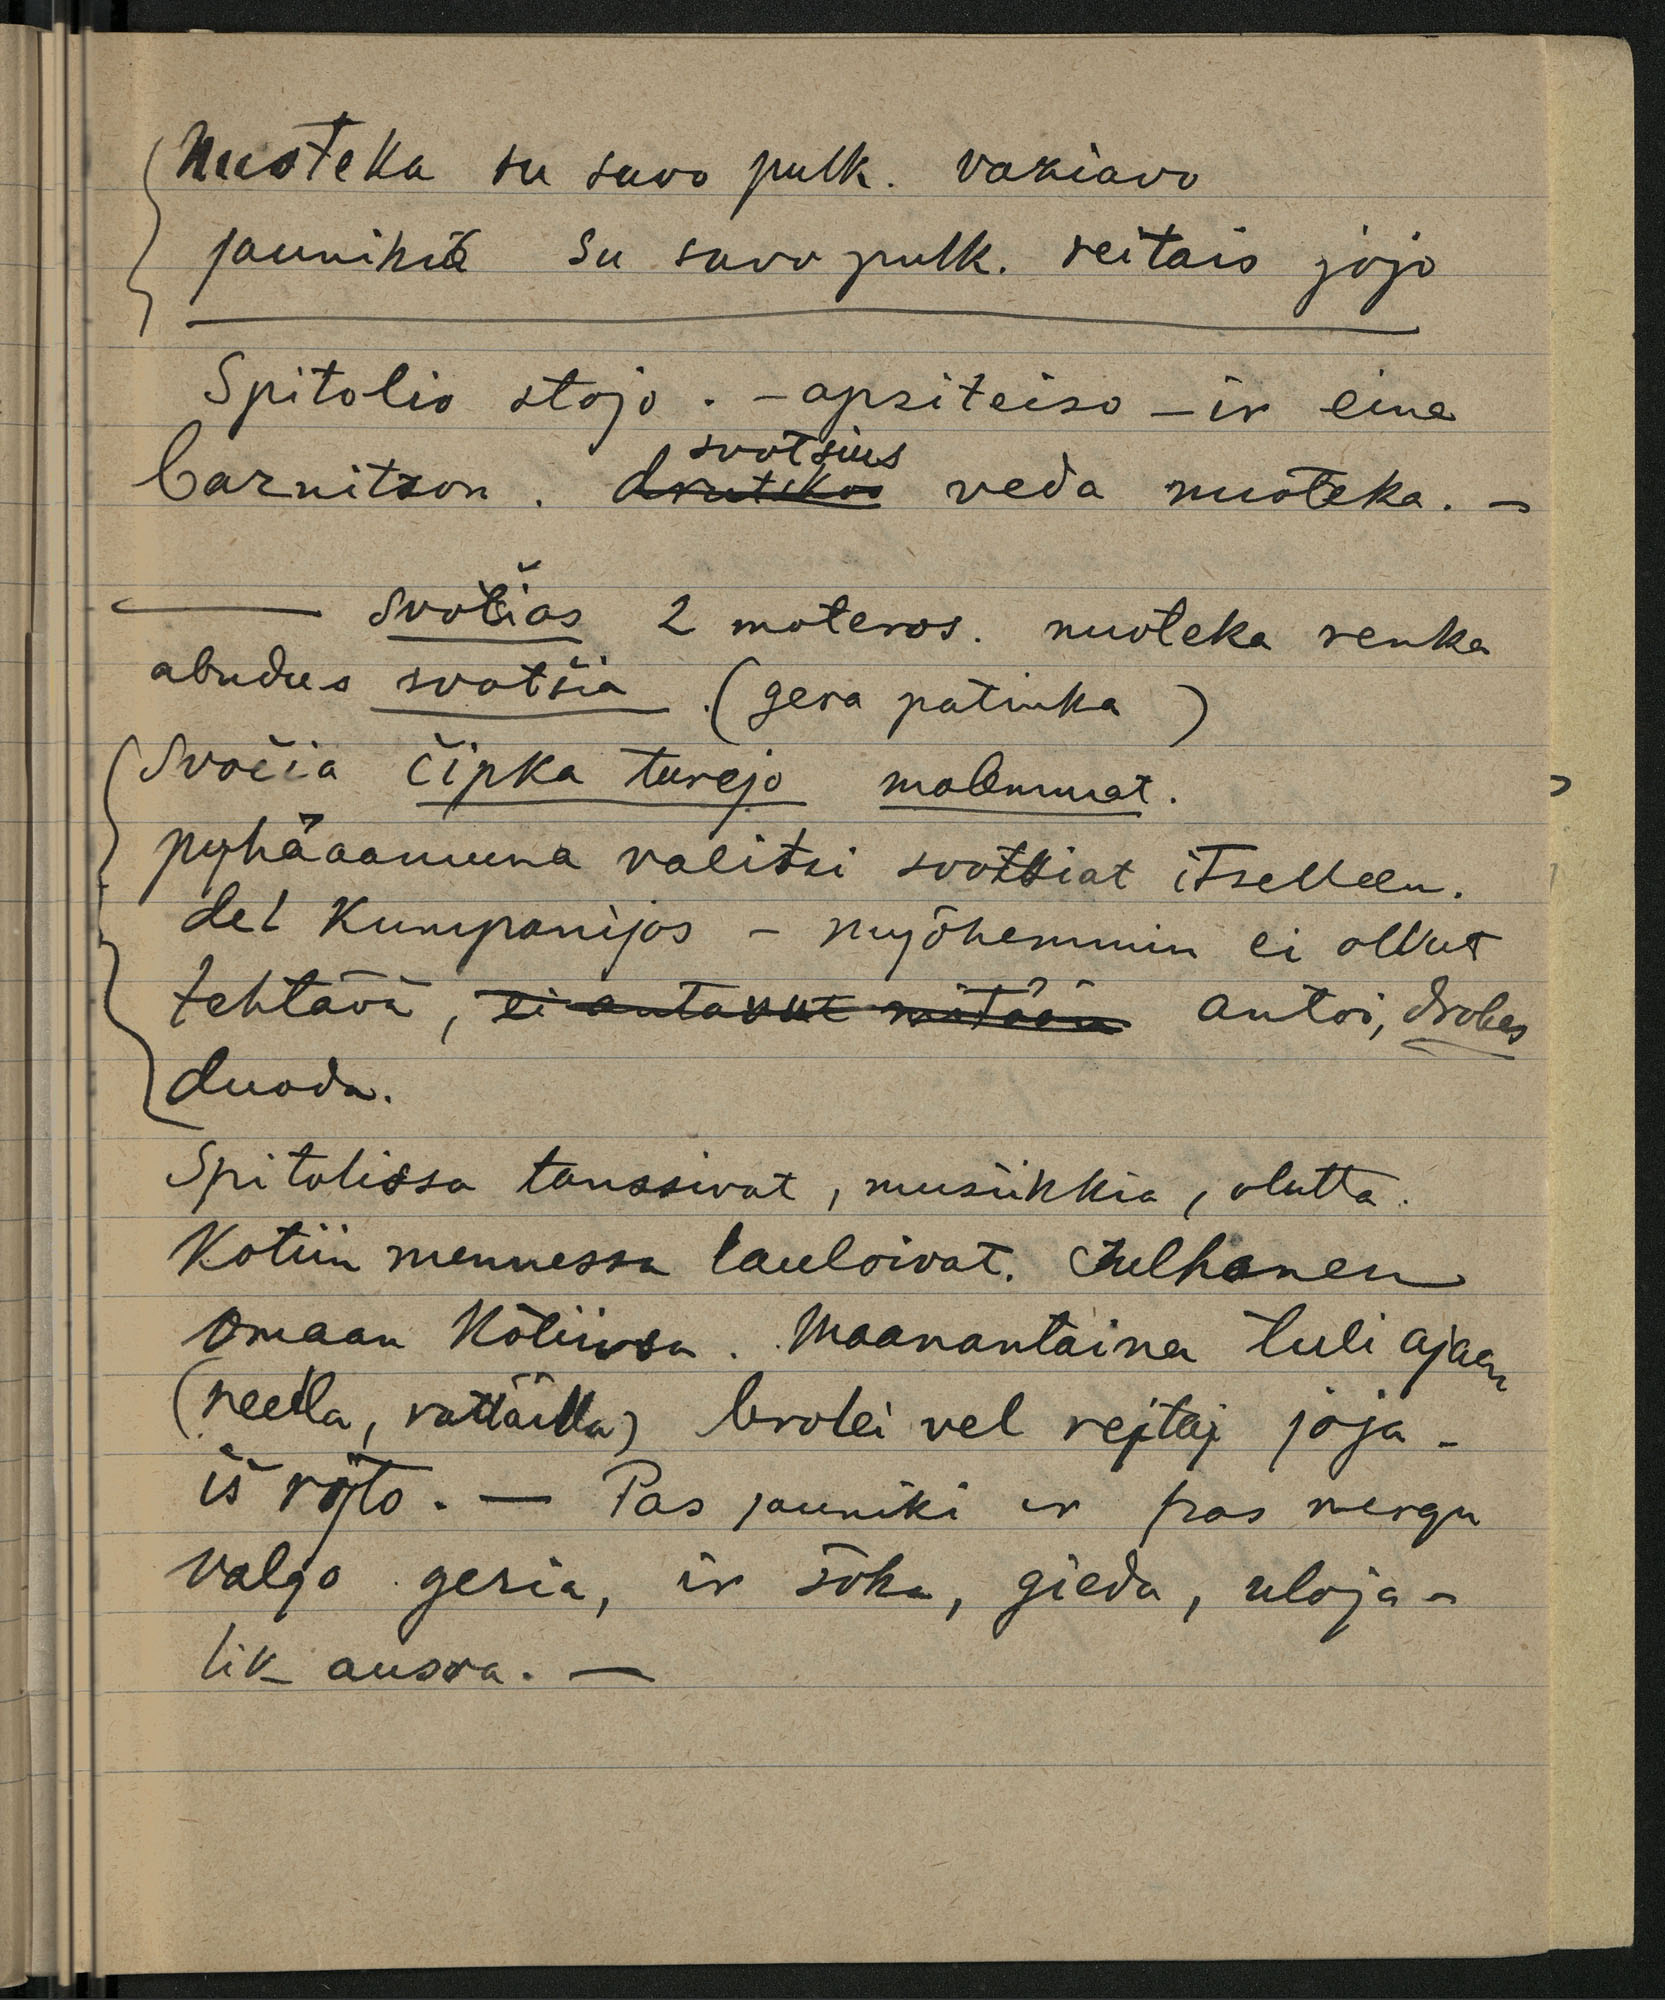 Nuoteka su savo pulk. vaziavo
jaunikis su savo pulk. reitais jojo
Spitolio stojo. – apsiteiso – ir eina
baznitson. svotsius drutskos veda nuoteka. –
— Svočias 2 moteros. nuoteka renka
abudus svotšia. (gera patinka)
Svočia čipka turejo molemmat.
pyhäaamuna valitsi svottiat itselleen.
del Kumpanijos – myöhemmin ei ollut
tehtävä, ei antanut mitään antoi, drobes
duoda.
Spitolissa tanssivat, musiikkia, olutta.
Kotiin mennessa lauloivat. Sulhanen
omaan Kotiinsa. Maanantaina tuli ajaen
(reella, rattäilla) brolei vel rejtaj joja –
iš rÿto. — Pas jauniki ir pas mergu
valgo geria, ir šoka, gieda, uloja –
lik ausra. —